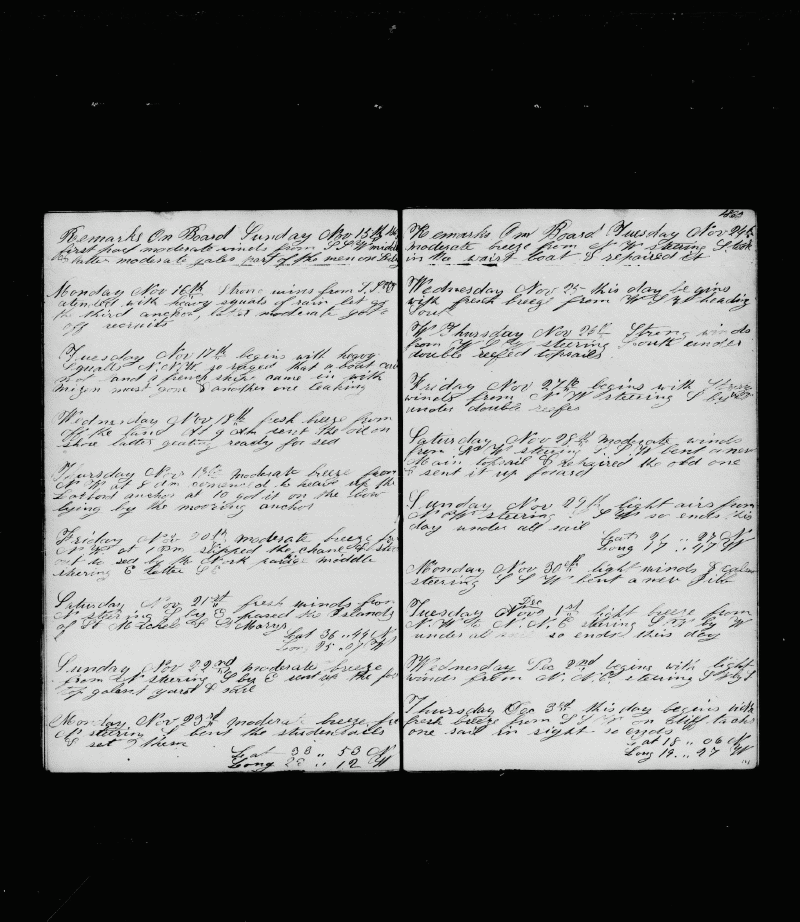 Remarks On Board Sunday Nov 15th
first part moderate winds from S S W middle
& latter moderate gales part of the men on
Monday Nov 16th Strong winds from S S W
atended with heavy squals of rain let go
the third anchor latter moderate got
off recruits
Tuesday Nov 17th begins with heavy
Squalls N. N. W. so raged that a boat
not land 2 french ships came in with
mizen mast gone & another one leaking
Wednesday Nov 18th fresh breze from
off the land at 9 AM sent the oil on
shore latter geating ready for sea
Thursday Nov 19th moderate breeze from
N W at 8 Am comenced to heave up the
Larbord anchor at 10 got it on the bow
lying by the mooring anchor
Friday Nov 20th moderate breeze
N. W. at 1 PM slipped the chane &
out to sea by the N ork middle
steering E latter S E
Saturday Nov 21st fresh winds from
N steering S by E passed the Islands
of St Michel & St Marys
Lat 36 .. 44 N
Long 25 .. 07 W
Sunday Nov 22nd moderate breeze
from N stering S by E sent up the
top galant yard & sail
Monday Nov 23rd moderate breeze
N steering S bent the studensails
& set 2 them
Lat 33 .. 53 N
Long 23 .. 12 W
Remarks On Board Tuesday Nov 24th
moderate breeze from N W steering S. took
in the waist boat & repaired it
Wednesday Nov 25 this day begins
with fresh breeze from W S W heading
South
Thursday Nov 26th Strong winds
from W S W steering South under
double reefed topsails
Friday Nov 27th begins with Strong
winds from N W steering S by W
under double reefes
Saturday Nov 28th moderate winds
from N W steering S. S. W bent a new
Main topsail & repaired the old one
& sent it up foward
Sunday Nov 29th light airs from
N. W. steering S W so ends this
day under all sail
Lat 21 .. 27 N
Long 17 .. 47 W
Monday Nov 30th light winds & calm
steering S S W bent a new Jibb
Dec
Tuesday Nov 1st light breeze from
N. W. to N. N. E stering S. W by W
under all so ends this day
Wednesday Dec 2nd begins with light
winds from N. N. E. steering S W by S
Thursday Dec 3rd this day begins with
fresh breeze from S S W on diff tacks
one sail in sight so ends
Lat 18 .. 06 N
Long 19 .. 27 W